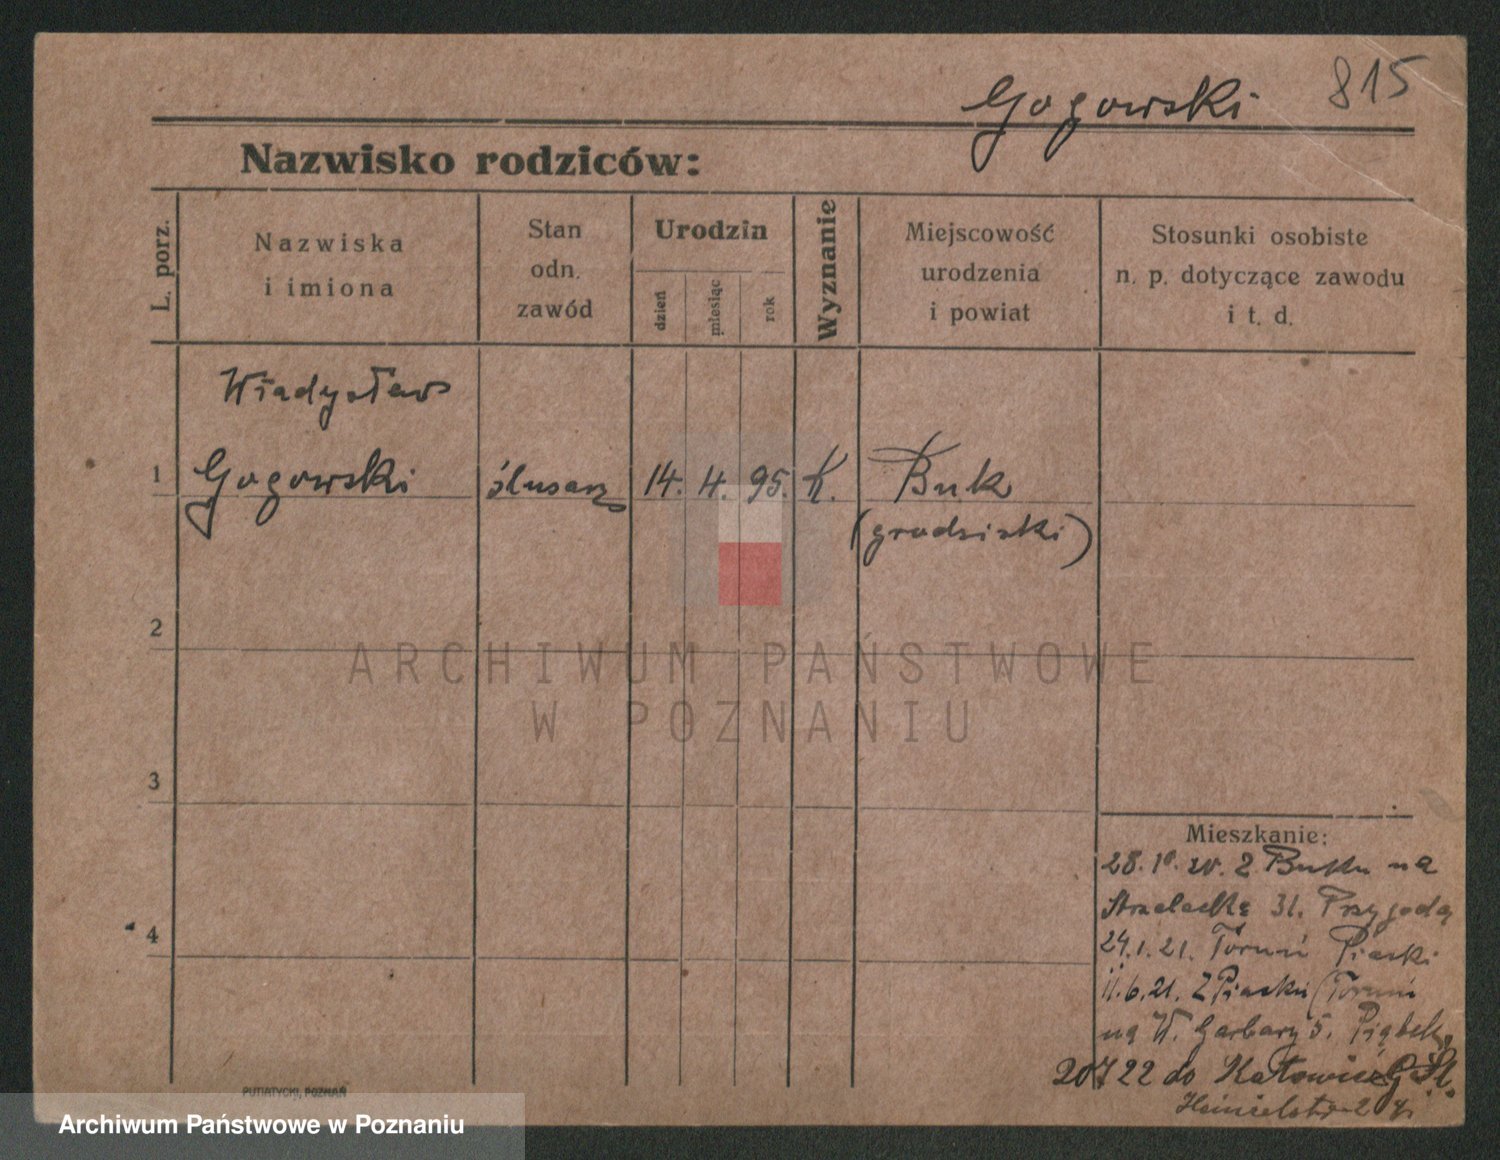 815
Gogowski
Nazwisko rodziców:
L. porz.
Nazwiska
i imiona
Stan
odn.
zawód
Urodzin
dzień
miesiąc
rok
Wyznanie
Miejscowość
urodzenia
i powiat
Stosunki osobiste
n. p. dotyczące zawodu
i t. d.
Władysław
1 Gogowski ślusarz 14. 4. 95. K. Buk
(grodziski)
2
ARCHIWUM PAŃSTWOWE
W POZNANIU
3
4
Mieszkanie:
28. 10. 20. Z Buku na
Strzelecką 31. Przygoda
24.1.21. Toruń Piaski
11.6.21. Z Piaski (Toruń
na W. Garbary 5. Piątek
20/7 22 do Katowice G. Śl.
PUTIATYCKI, POZNAŃ
Archiwum Państwowe w Poznaniu